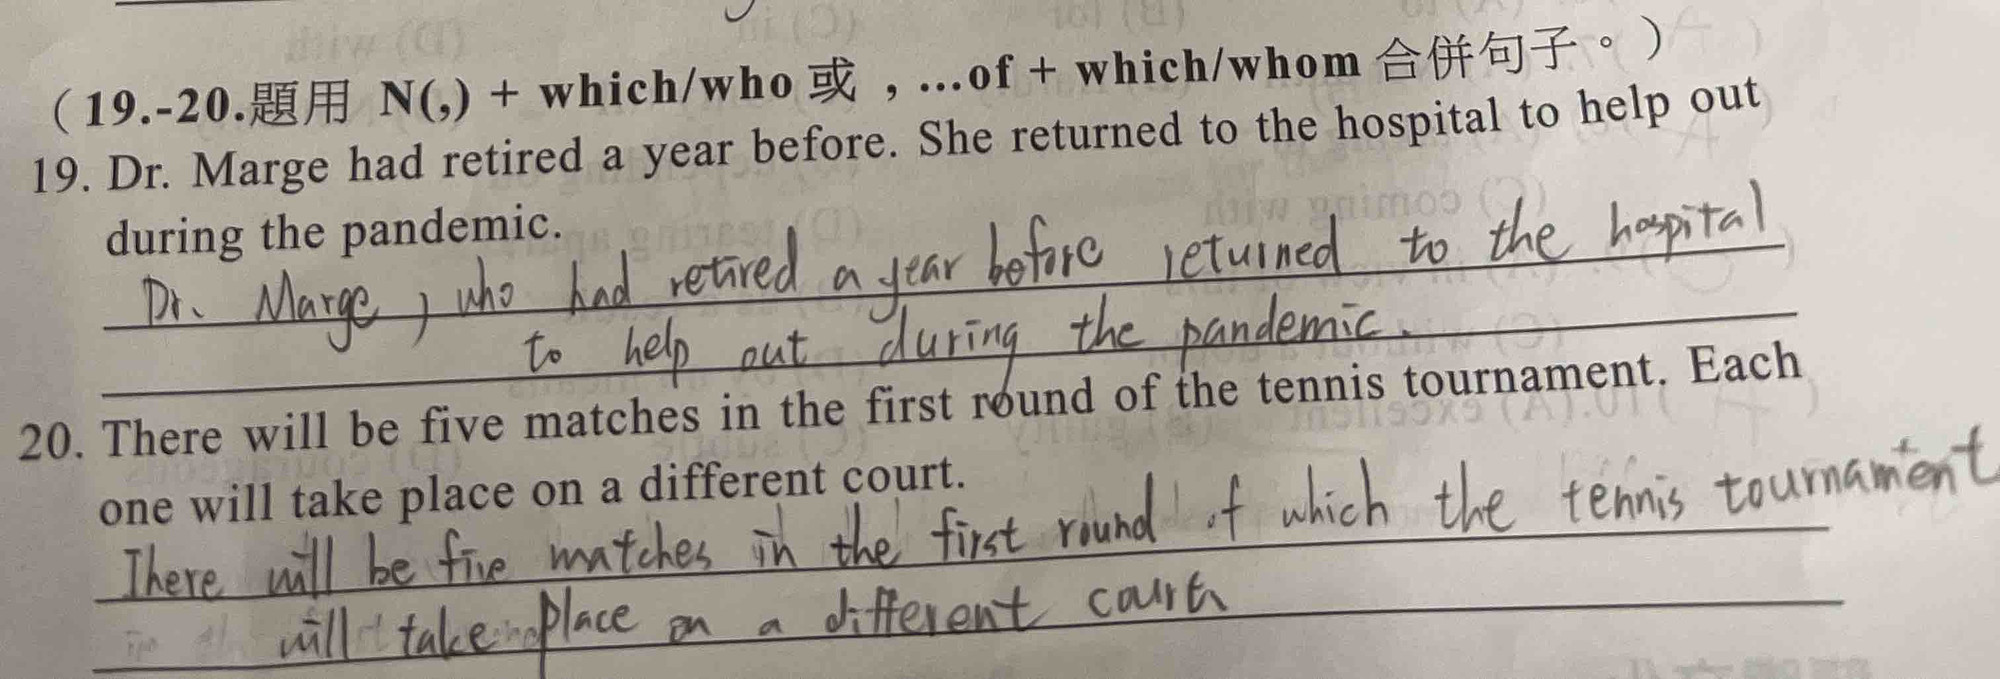 （19.-20.題用 N(,) + which/who 或 , ...of + which/whom 合併句子。）
19. Dr. Marge had retired a year before. She returned to the hospital to help out
during the pandemic.
Dr. Marge, who had retired a year before returned to the hospital
to help out during the pandemic.
20. There will be five matches in the first round of the tennis tournament. Each
one will take place on a different court.
There will be five matches in the first round of which the tennis tournament
will take place on a different court